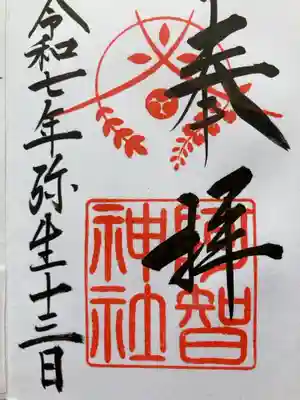 奉拝
阿智神社
令和七年弥生十三日